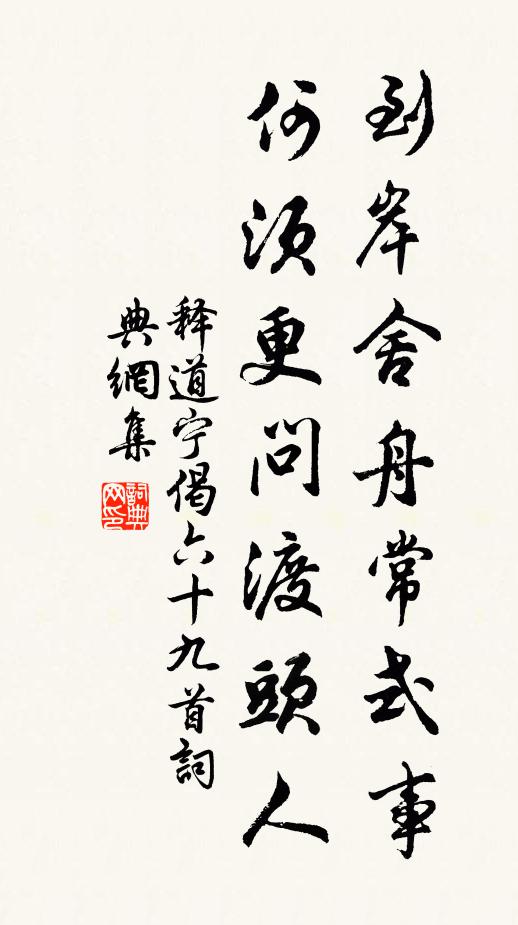 到岸舍舟常式事
何須更問渡頭人
释道宁偈六十九首詞
典網集
詞典
网印